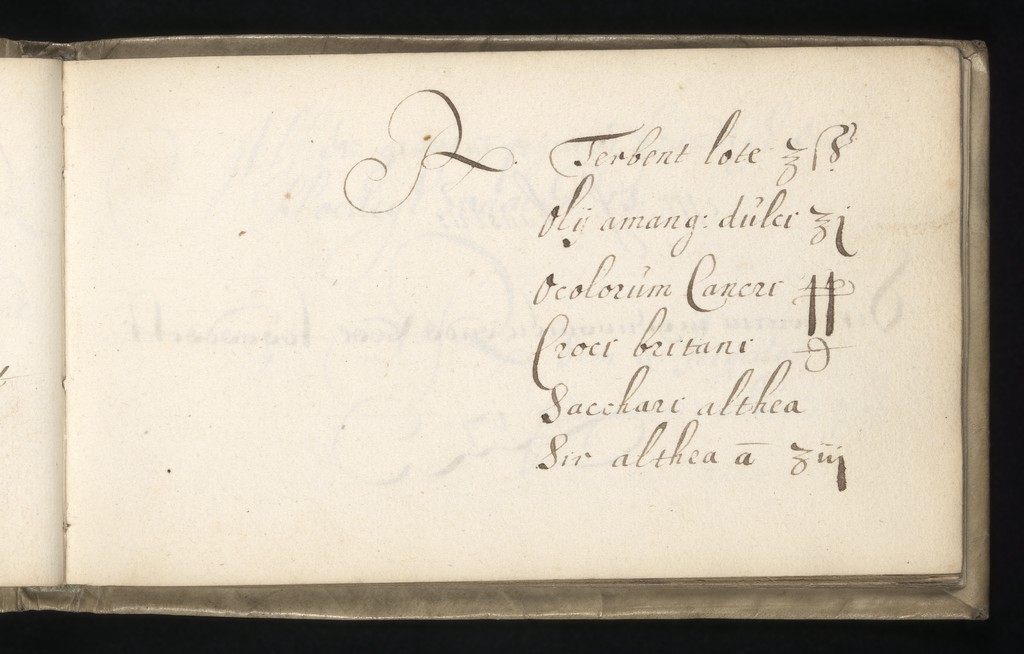 ℞ Terbent lote ʒ ſß
Olij amang: dúlci ʒj
Ocolorúm Cancri
Croci britani
Sacchari althea
Sir althea ā ʒiij